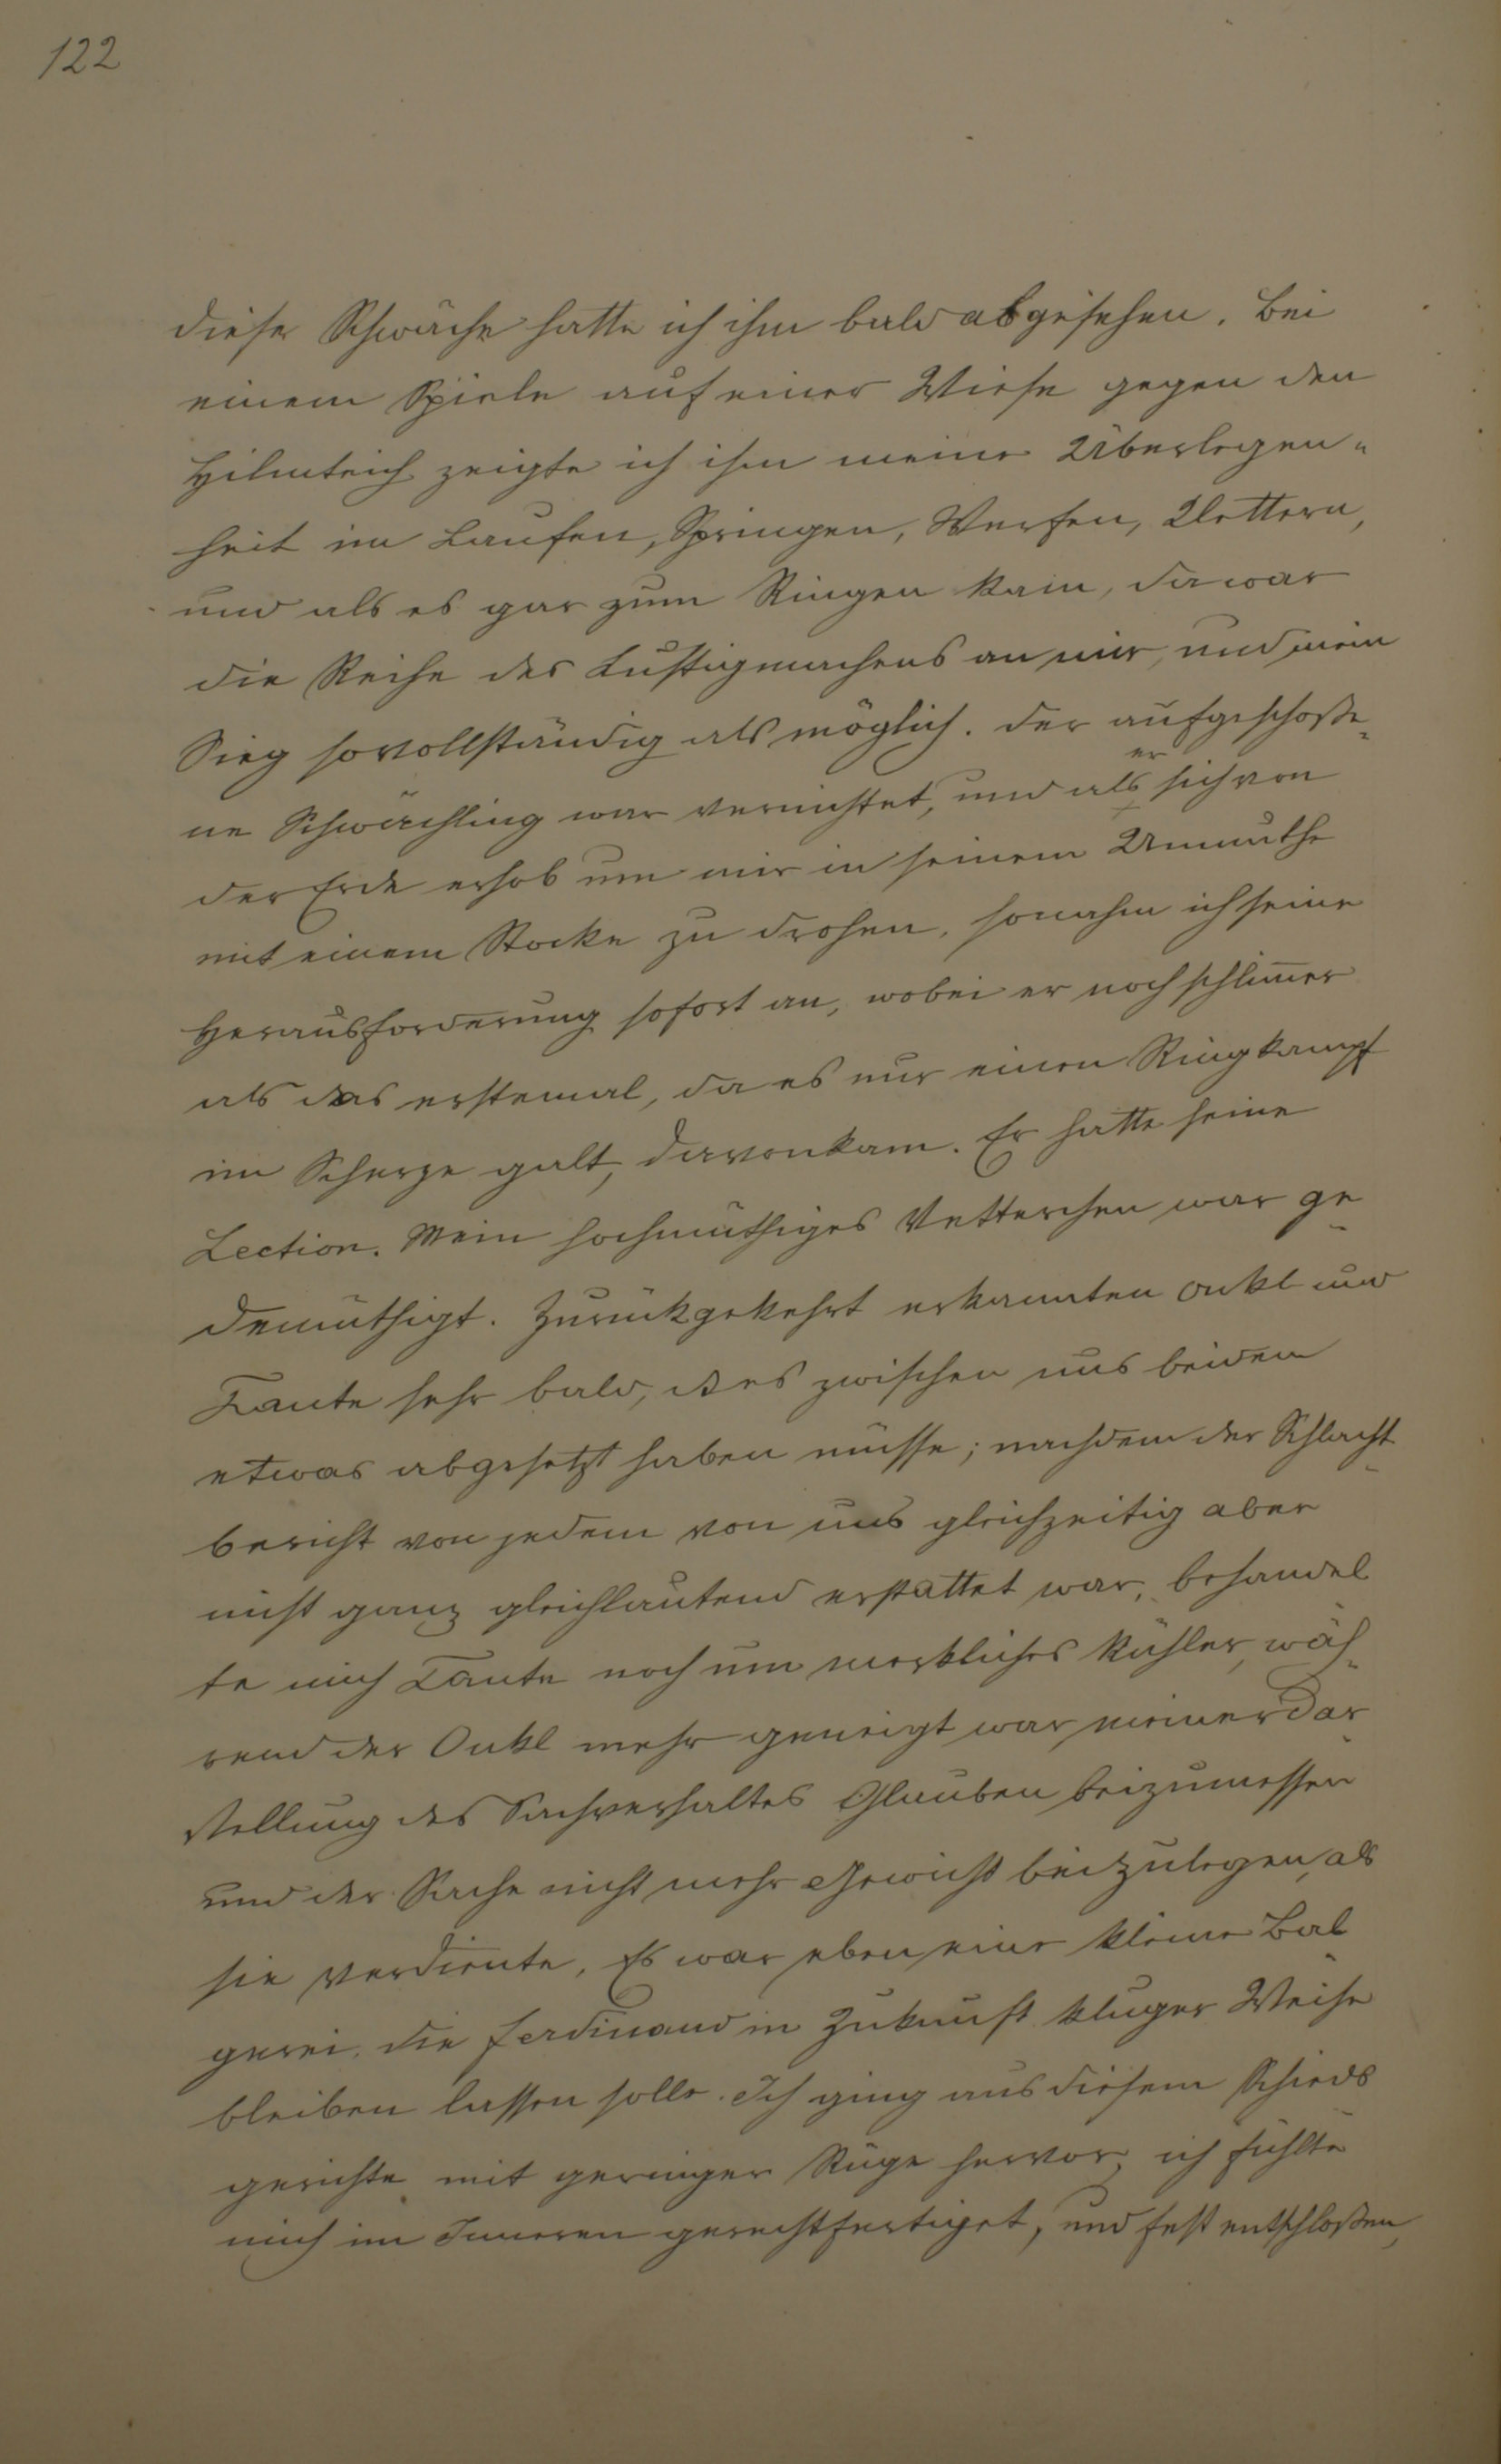 122
diese Schwäche hatte ich ihm bald abgesehen. Bei
einem Spiele auf einer Wiese gegen den
Hilmteich zeigte ich ihm meine Überlegen-
heit im Laufen, Springen, Werfen, Klettern,
und als es gar zum Ringen kam, da war
die Reihe des Lustigmachens an mir, und mein
Sieg so vollständig als möglich. Der aufgeschoße-
ne Schwächling war vernichtet, und als er sich von
der Erde erhob um mir in seinem Unmuthe
mit einem Stocke zu drohen, so nahm ich seine
Herausforderung sofort an, wobei er noch schlim̄er
als das erstemal, da es nur einen Ringkampf
im Scherze galt, davonkam. Er hatte seine
Lection. Mein hochmüthiges Vetterchen war ge-
demüthigt. Zurückgekehrt erkannten Onkl und
Tante sehr bald, dß es zwischen uns beiden
etwas abgesetzt haben müsse; nachdem der Schlacht-
bericht von jedem von uns gleichzeitig aber
nicht ganz gleichlautend erstattet war, behandel
te mich Tante noch um merkliches kühler, wäh-
rend der Onkl mehr geneigt war meiner Dar-
stellung des Sachverhaltes Glauben beizumessen
und der Sache nicht mehr Gewicht beizulegen, als
sie verdiente. Es war eben eine kleine Bal-
gerei, die Ferdinand in Zukunft kluger Weise
bleiben lassen solle. Ich ging aus diesem Schieds
gerichte mit geringer Rüge hervor, ich fühlte
mich im Inneren gerechtfertiget, und fest entschloßen,